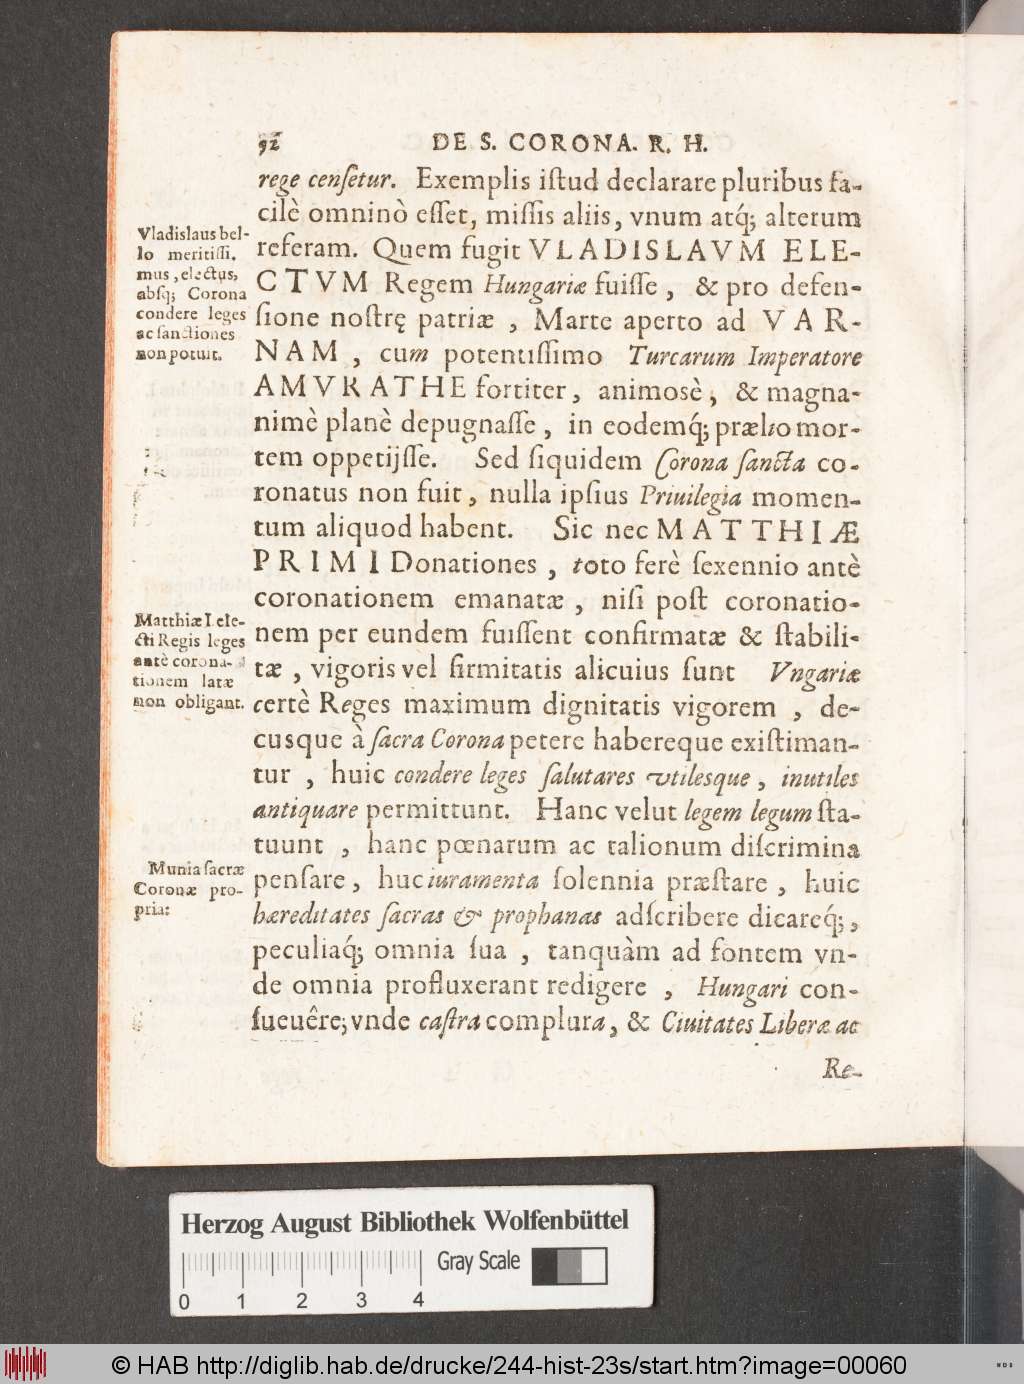 92 DE S. CORONA. R. H.
rege censetur. Exemplis iſtud declarare pluribus fa-
cilè omninò eſſet, miſſis aliis, vnum atq́; alterum
referam. Quem fugit VLADISLAVM ELE-
CTVM Regem Hungariæ fuiſſe, & pro defen-
ſione noſtrę patriæ, Marte aperto ad VAR-
NAM, cum potentiſſimo Turcarum Imperatore
AMVRATHE fortiter, animosè, & magna-
nimè planè depugnaſſe, in eodemq́; prælio mor-
tem oppetijſſe. Sed ſiquidem Corona ſancta co-
ronatus non fuit, nulla ipſius Priuilegia momen-
tum aliquod habent. Sic nec MATTHIÆ
PRIMI Donationes, toto ferè ſexennio antè
coronationem emanatæ, niſi poſt coronatio-
nem per eundem fuiſſent confirmatæ & ſtabili-
tæ, vigoris vel firmitatis alicuius ſunt Vngariæ
certè Reges maximum dignitatis vigorem, de-
cusque à ſacra Corona petere habereque exiſtiman-
tur, huic condere leges ſalutares vtilesque, inutiles
antiquare permittunt. Hanc velut legem legum ſta-
tuunt, hanc pœnarum ac talionum diſcrimina
penſare, huc iuramenta ſolennia præſtare, huic
hæreditates ſacras & prophanas adſcribere dicareq́;,
peculiaq́; omnia ſua, tanquàm ad fontem vn-
de omnia profluxerant redigere, Hungari con-
ſueuêre; vnde caſtra complura, & Ciuitates Liberæ ac
Re-
Vladislaus bel-
lo meritiſſi-
mus, electus,
absq; Corona
condere leges
ac ſanctiones
non potuit.
Matthiæ I. ele-
cti Regis leges
antè corona-
tionem latæ
non obligant.
Munia ſacræ
Coronæ pro-
pria:
Herzog August Bibliothek Wolfenbüttel
Gray Scale
0 1 2 3 4
© HAB http://diglib.hab.de/drucke/244-hist-23s/start.htm?image=00060